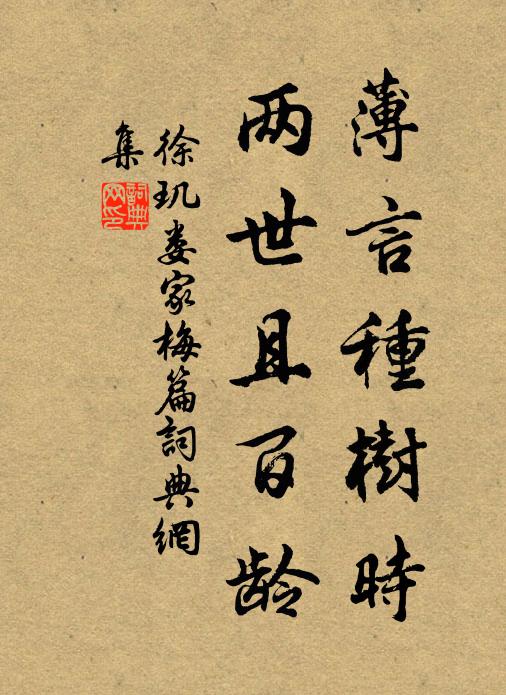 薄言種樹時
两世且百龄
徐玑娄家梅篇詞典網
集
詞典网印